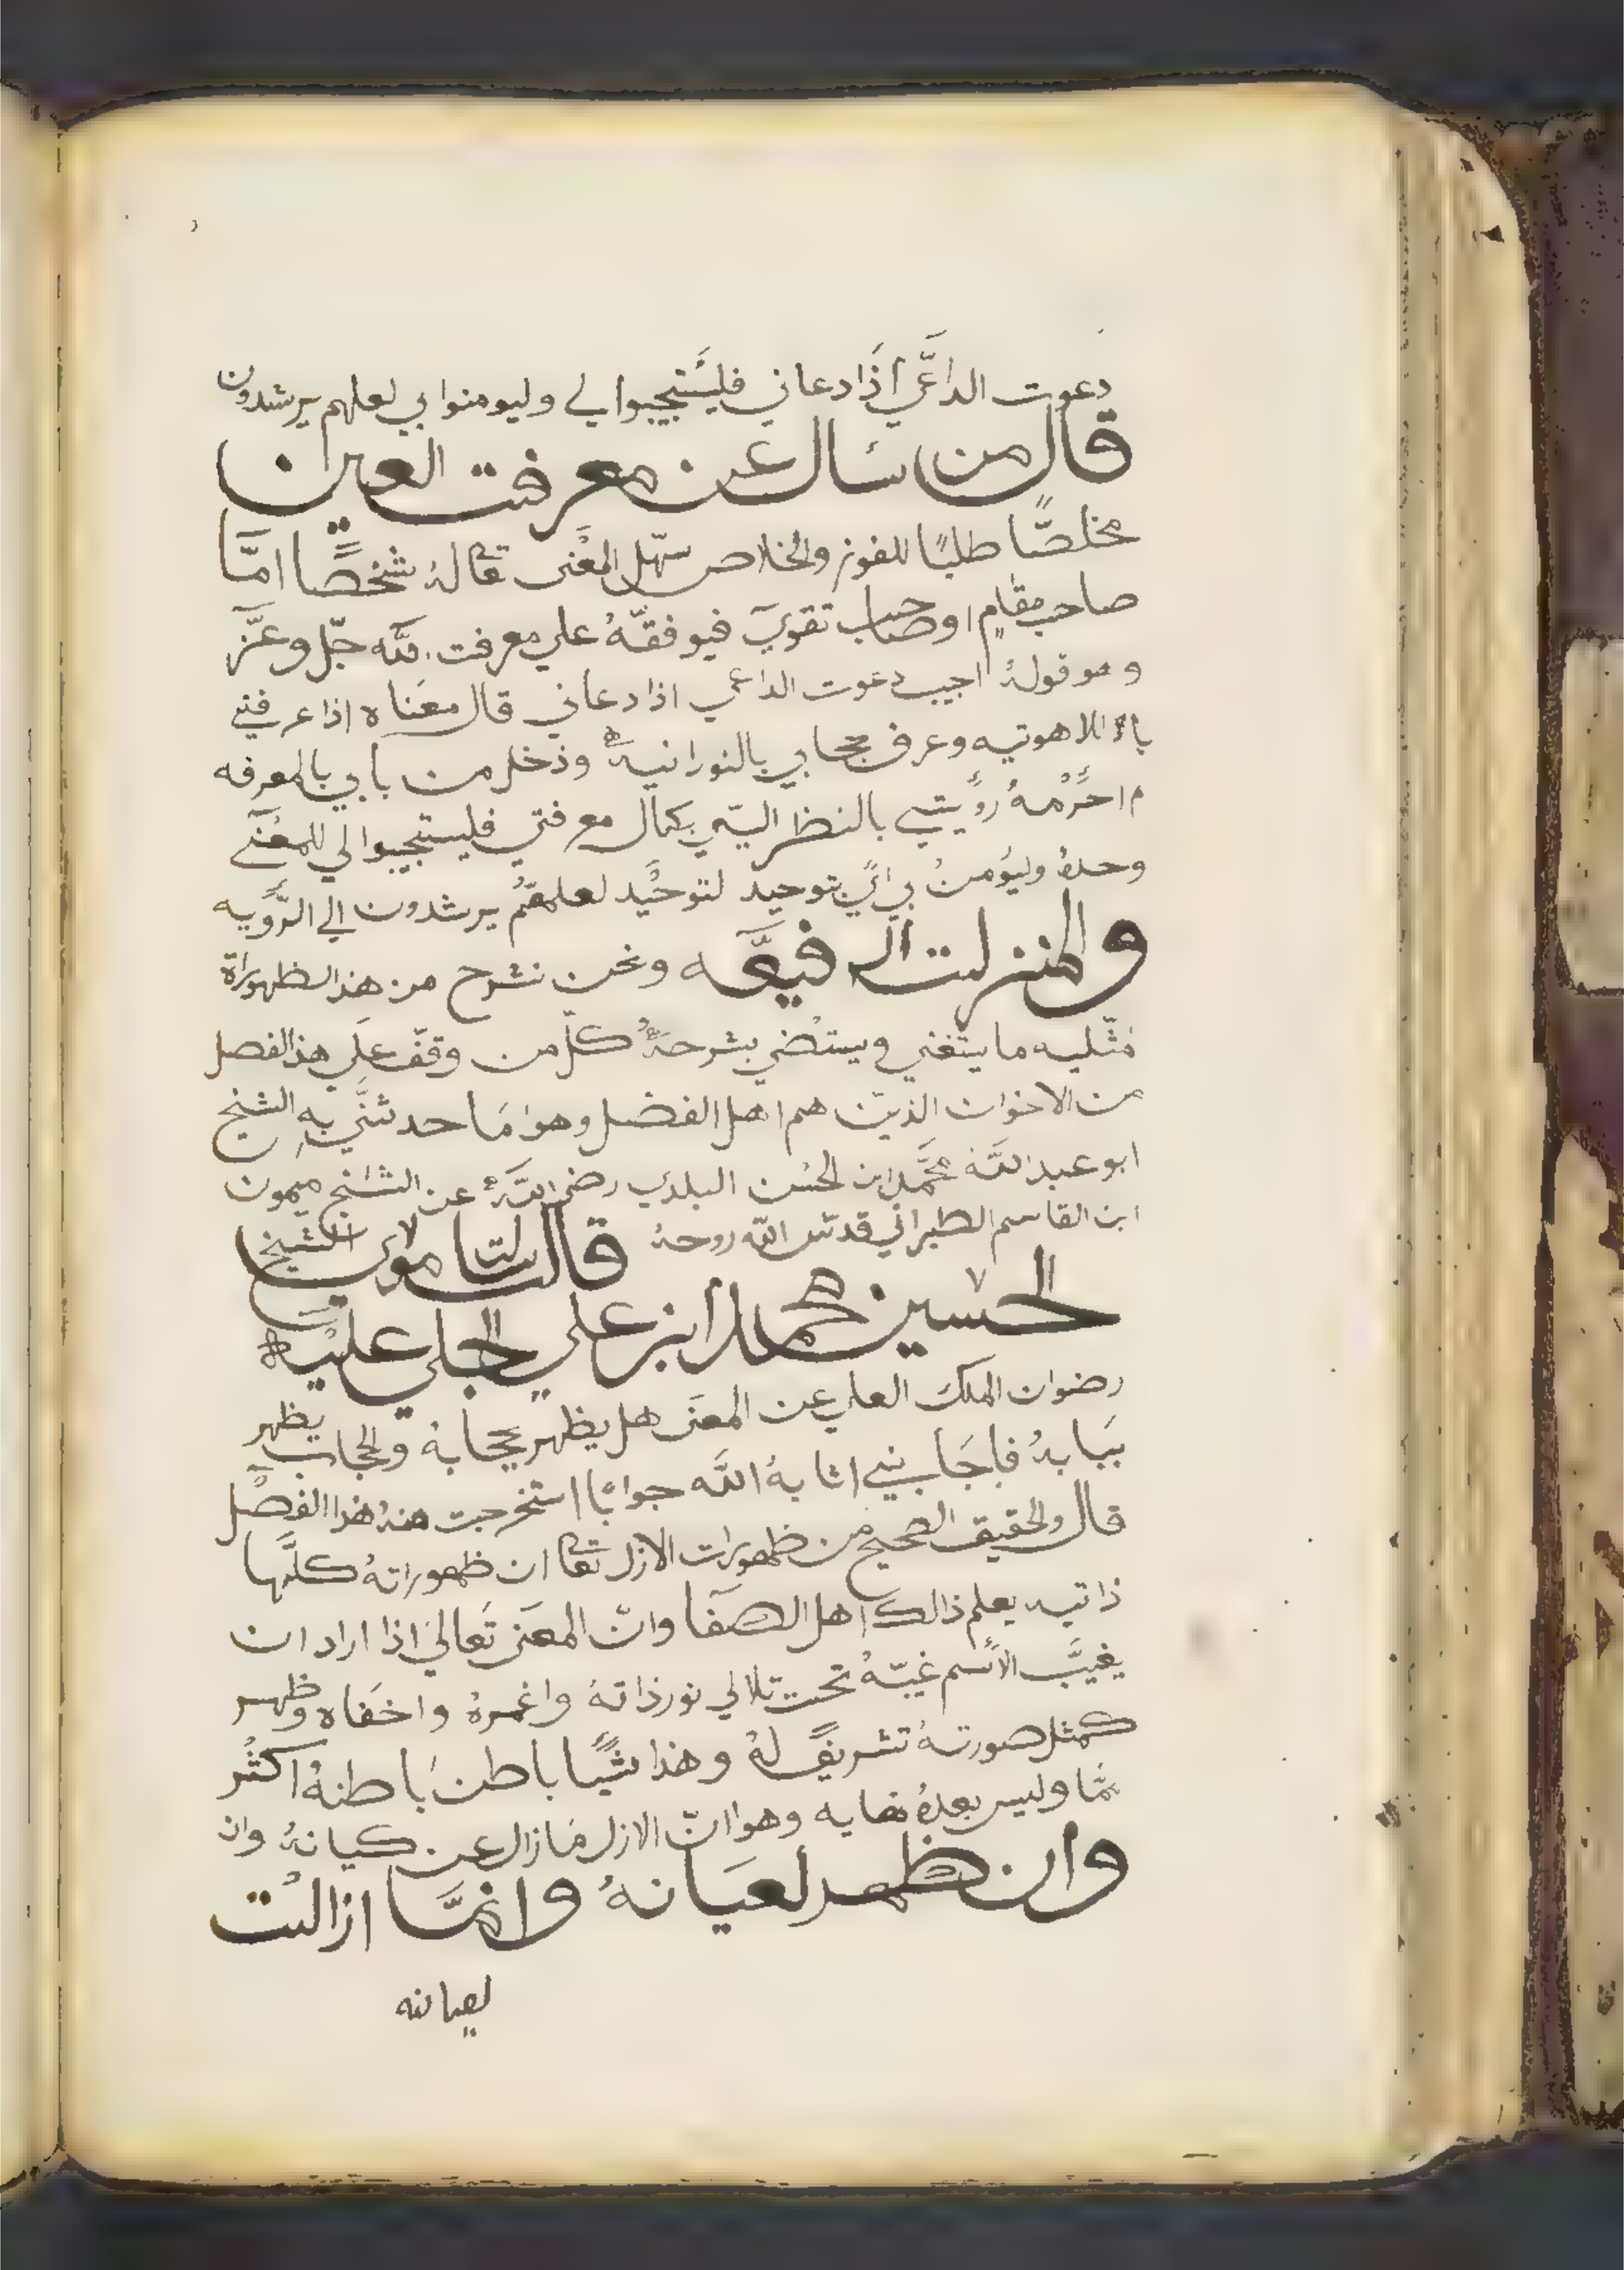 دعوت الداعي اذا دعاني فليستجيبوا لي وليومنوا بي لعلهم يرشدون
قال من سال عن معرفت العين
مخلصًا طلبًا للفوز والخلاص سهل المعنى تعا له شخصًا امّا
صاحب مقام او صاحب تقوي فيوفقه علي معرفت الله جل وعزّ
وهو قوله اجيب دعوت الداعي اذا دعاني قال معناه اذا عرفني
بالاهوتيه وعرف حجابي بالنورانيه ودخل من بابي بالمعرفه
احرمه رؤيتي بالنظر اليّ بكمال معرفتي فليستجيبوا لي للمعنى
وحده وليؤمن بي اي بتوحيد لتوحيد لعلهم يرشدون الي الرؤيه
والمنزلت الرفيعه ونحن نشرح من هذا الظهوراة
مثليه ما يتغني ويستضي بشرحه كل من وقف علي هذا الفصل
من الاخوان الذين هم اهل الفضل وهو ما حدثني به الشيخ
ابو عبد الله محمد ابن الحسن البلدي رضي الله عن الشيخ ميمون
ابن القاسم الطبراني قدس الله روحه قال سالت مولاي الشيخ
الحسين محمد ابن علي الجلي عليه
رضوان الملك العلي عن المعنى هل يظهر بحجابه والحجاب يظهر
ببابه فاجابني اثابه الله جوابًا استخرجت منه هذا الفصل
قال والحقيق الصحيح من ظهورات الازل تعا ان ظهوراته كلها
ذاتيه يعلم ذالك اهل الصفا وانّ المعنى تعالي اذا اراد ان
يغيب الاسم غيبه تحت تلالي نور ذاته واغمره واخفاه وظهر
كمثل صورته تشريفً له وهذا شيًا باطن باطنه اكثر
مما وليس بعده نهايه وهو انّ الازل ما زال عن كيانه وان
وان ظهر لعيانه وانمّا ازالت
لعيانه